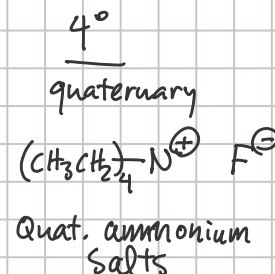 4°
quaternary
(CH₃CH₂)₄–N⊕ F⊖
Quat. ammonium
salts